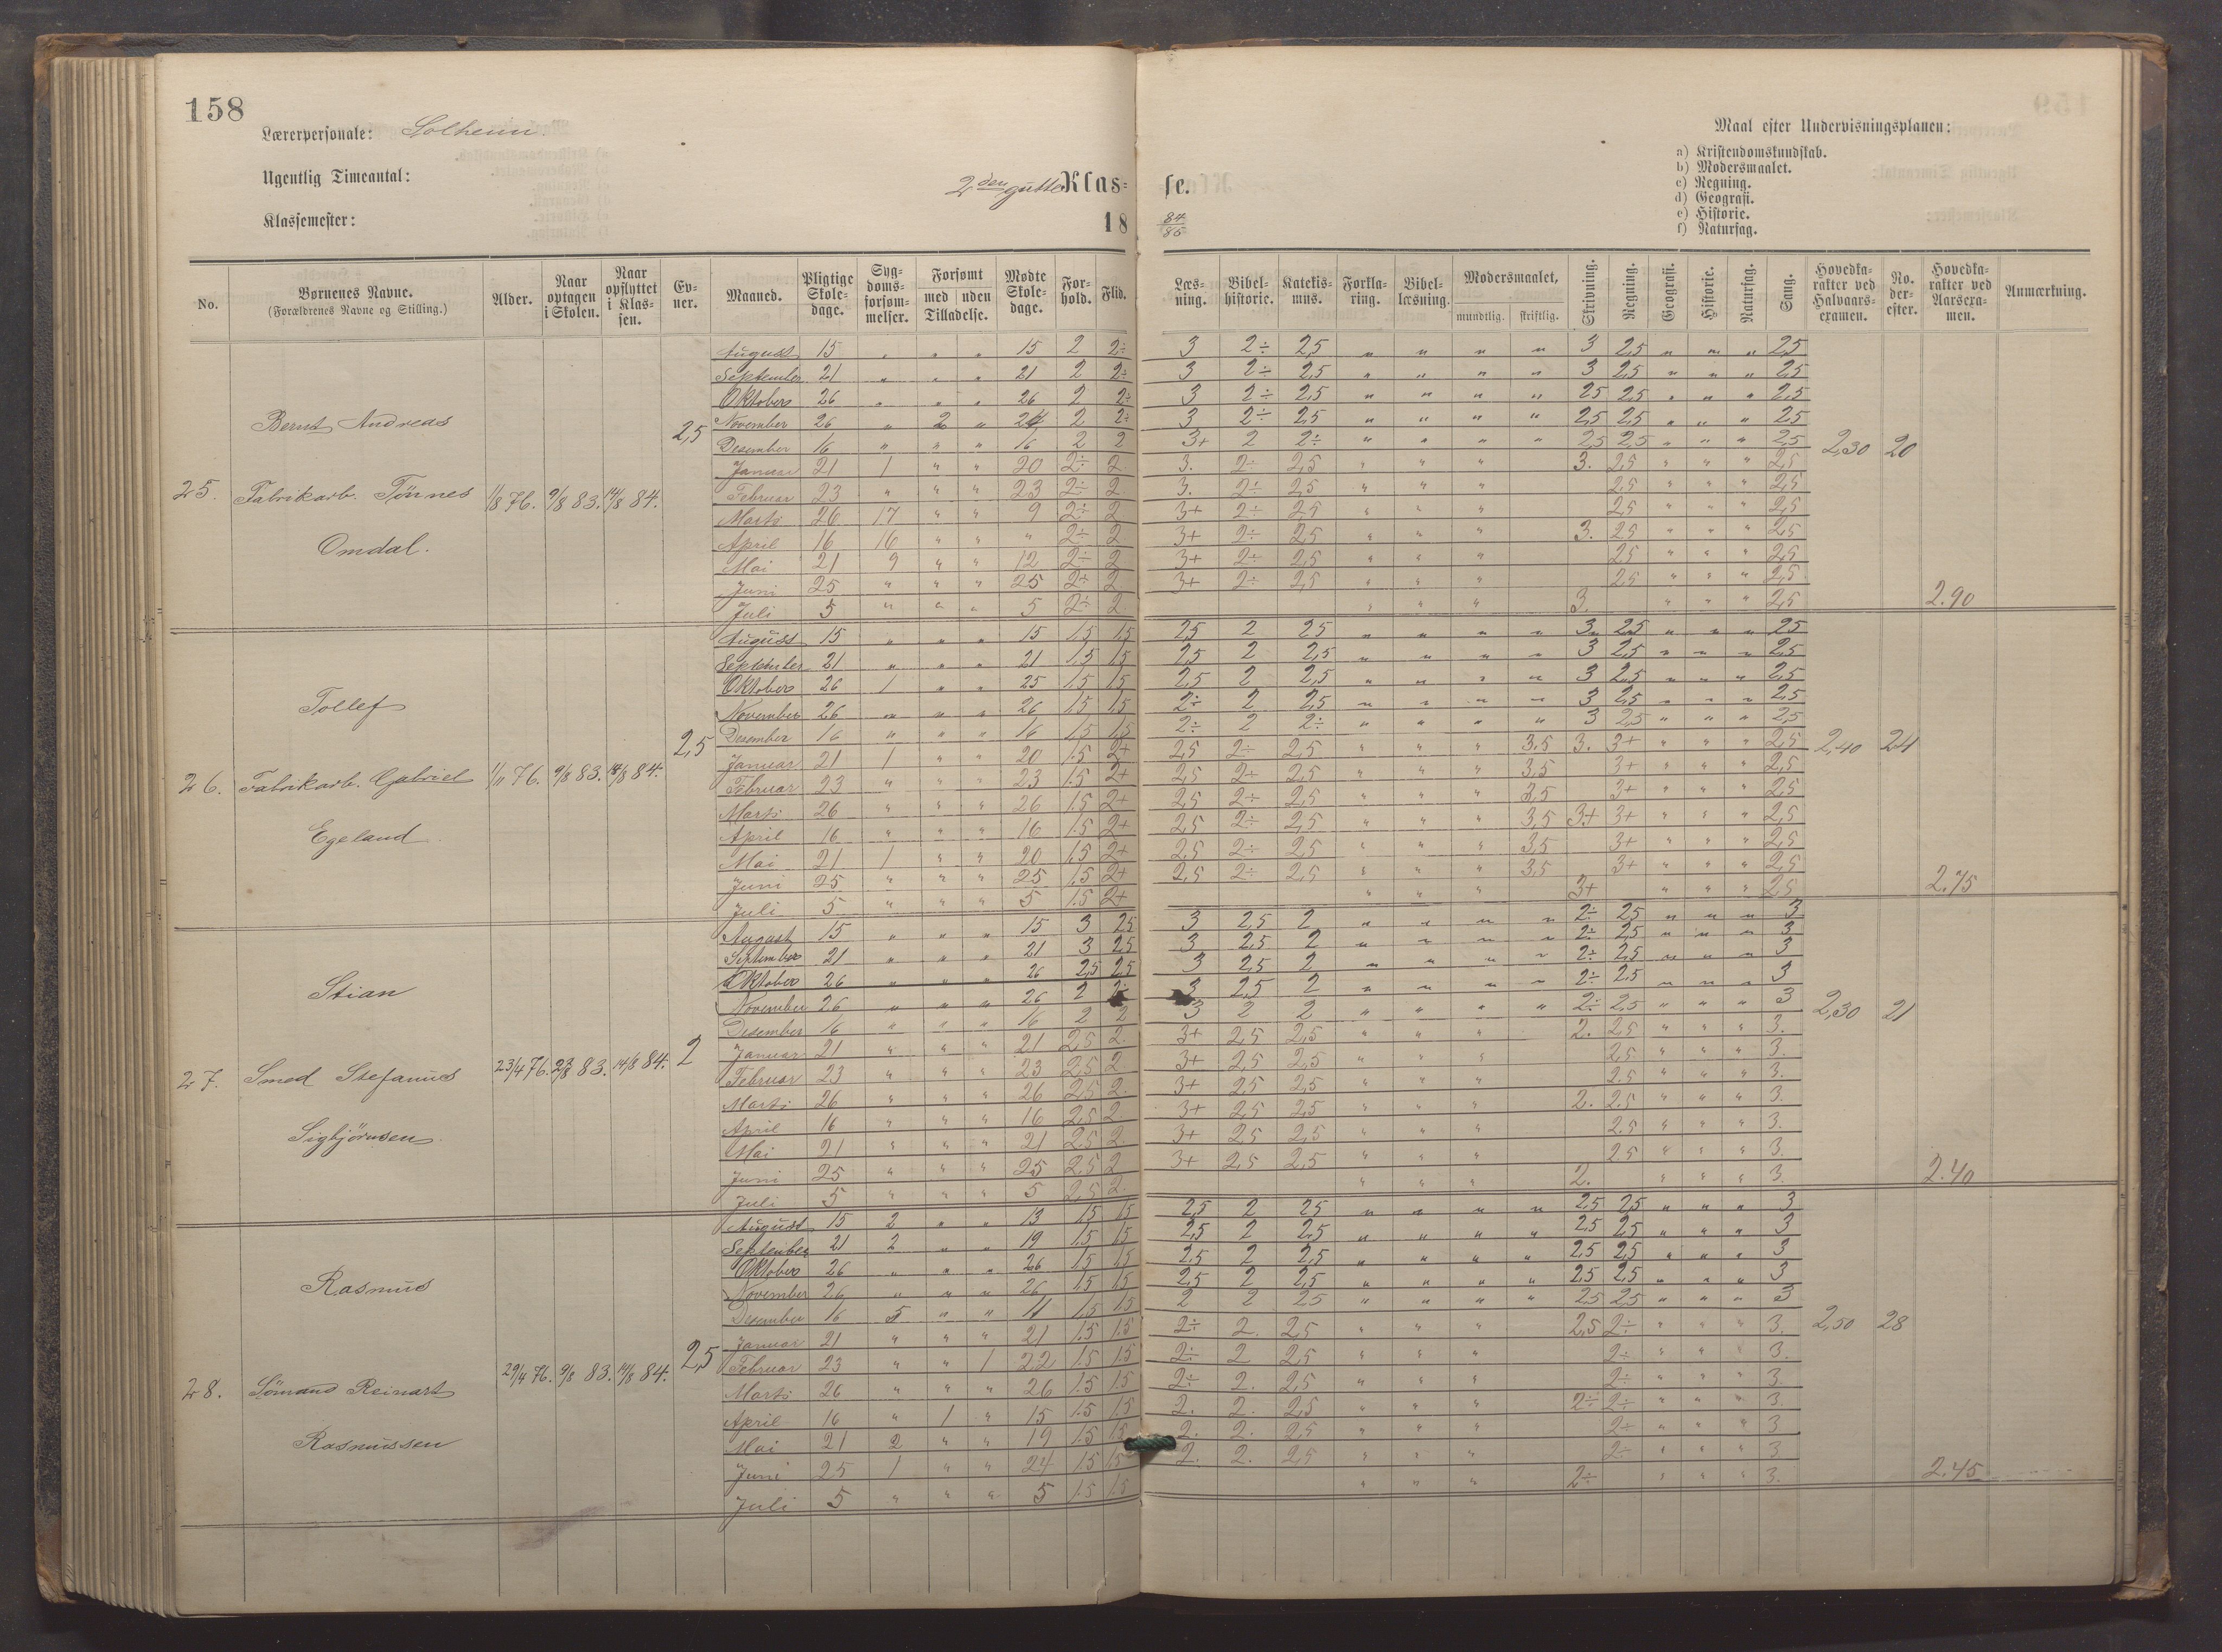 158
Lærerpersonale: Solheim.
Ugentlig Timeantal:
Klassemester:
2den gutte Klas=
se.
18
84
85
Maal efter Undervisningsplanen:
a) Kristendomskundskab.
b) Modersmaalet.
c) Regning.
d) Geografi.
e) Historie.
f) Naturfag.
No.
Børnenes Navne.
(Forældrenes Navne og Stilling.)
Alder.
Naar optagen i Skolen.
Naar opflyttet i Klassen.
Evner.
Maaned.
Pligtige Skoledage.
Sygdomsforsømmelser.
Forsømt
med uden
Tilladelse.
Mødte Skoledage.
Forhold.
Flid.
Læsning.
Bibelhistorie.
Katekismus.
Forklaring.
Bibellæsning.
Modersmaalet,
mundtlig. skriftlig.
Skrivning.
Regning.
Geografi.
Historie.
Naturfag.
Sang.
Hovedkarakter ved Halvaarsexamen.
No. derefter.
Hovedkarakter ved Aarsexamen.
Anmærkning.
25. Bernt Andreas
Fabrikarb. Tönnes
Omdal.
1/8 76. 9/8 83. 14/8 84. 2,5
August 15 " " " 15 2 2÷ 3 2÷ 2,5 " " " " 3 2,5 " " " 2,5
September 21 " " " 21 2 2÷ 3 2÷ 2,5 " " " " 3 2,5 " " " 2,5
Oktober 26 " " " 26 2 2÷ 3 2÷ 2,5 " " " " 2,5 2,5 " " " 2,5
November 26 " 2 " 24 2 2÷ 3 2÷ 2,5 " " " " 2,5 2,5 " " " 2,5
Desember 16 " " " 16 2 2 3+ 2 2÷ " " " " 2,5 2,5 " " " 2,5 2,30 20
Januar 21 1 " " 20 2÷ 2 3. 2÷ 2,5 " " " 3. 2,5 " " " 2,5
Februar 23 " " " 23 2÷ 2 3. 2÷ 2,5 " " " 2,5 " " " 2,5
Marts 26 17 " " 9 2÷ 2 3+ 2÷ 2,5 " " " 2,5 " " " 2,5
April 16 16 " " " 2÷ 2 3+ 2÷ 2,5 " " " 3. 2,5 " " " 2,5
Mai 21 9 " " 12 2÷ 2 3+ 2÷ 2,5 " " " 2,5 " " " 2,5
Juni 25 " " " 25 2÷ 2 3+ 2÷ 2,5 " " " 2,5 " " " 2,5
Juli 5 " " " 5 2÷ 2 " " " 3. " " " 2,5 2.90
26. Tollef
Fabrikarb. Gabriel
Egeland.
1/11 76. 9/8 83. 14/8 84. 2,5
August 15 " " " 15 1,5 1,5 2,5 2 2,5 " " " " 3 2,5 " " " 2,5
September 21 " " " 21 1,5 1,5 2,5 2 2,5 " " " " 3 2,5 " " " 2,5
Oktober 26 1 " " 25 1,5 1,5 2,5 2 2,5 " " " " 3 2,5 " " " 2,5
November 26 " " " 26 1,5 1,5 2÷ 2 2,5 " " " " 3 2,5 " " " 2,5
Desember 16 " " " 16 1,5 1,5 2÷ 2 2÷ " " " " 3 2,5 " " " 2,5 2,40 24
Januar 21 1 " " 20 1.5 2+ 2,5 2÷ 2,5 " " " 3,5 3. 3+ " " " 2,5
Februar 23 " " " 23 1.5 2+ 2,5 2÷ 2,5 " " " 3,5 3+ " " " 2,5
Marts 26 " " " 26 1.5 2+ 2,5 2÷ 2,5 " " " 3,5 3+ " " " 2,5
April 16 " " " 16 1.5 2+ 2,5 2÷ 2,5 " " " 3,5 3+ 3+ " " " 2,5
Mai 21 1 " " 20 1,5 2+ 2,5 2÷ 2,5 " " " 3,5 3+ " " " 2,5
Juni 25 " " " 25 1,5 2+ 2,5 2÷ 2,5 " " " 3,5 3+ " " " 2,5
Juli 5 " " " 5 1.5 2+ " " " 3+ " " " 2,5 2.75
27. Stian
Smed Stefanus
Sigbjörnsen.
23/4 76. 83. 14/8 84. 2
August 15 " " " 15 3 2,5 3 2,5 2 " " " " 2÷ 2,5 " " " 3
September 21 " " " 21 3 2,5 3 2,5 2 " " " " 2÷ 2,5 " " " 3
Oktober 26 " " " 26 2,5 2,5 3 2,5 2 " " " " 2÷ 2,5 " " " 3
November 26 " " " 26 2 2÷ 3 2,5 2 " " " " 2÷ 2,5 " " " 3
Desember 16 " " " 16 2 2 3 2 2 " " " " 2÷ 2,5 " " " 3 2,30 21
Januar 21 " " " 21 2,5 2. 3+ 2,5 2,5 " " " 2. 2,5 " " " 3.
Februar 23 " " " 23 2,5 2 3+ 2,5 2,5 " " " 2,5 " " " 3.
Marts 26 " " " 26 2,5 2. 3+ 2,5 2,5 " " " 2.5 " " " 3.
April 16 " " " 16 2,5 2. 3+ 2,5 2,5 " " " 2. 2.5 " " " 3.
Mai 21 " " " 21 2,5 2. 3+ 2,5 2,5 " " " 2.5 " " " 3.
Juni 25 " " " 25 2.5 2 3+ 2,5 2,5 " " " 2.5 " " " 3.
Juli 5 " " " 5 2,5 2. " " " 2. " " " 3. 2.40
28. Rasmus
Sömand Reinart
Rasmussen
29/4 76. 9/8 83. 14/8 84. 2,5
August 15 2 " " 13 1,5 1,5 2,5 2 2,5 " " " " 2,5 2,5 " " " 3
September 21 2 " " 19 1,5 1,5 2,5 2 2,5 " " " " 2,5 2,5 " " " 3
Oktober 26 " " " 26 1,5 1,5 2,5 2 2,5 " " " " 2,5 2,5 " " " 3
November 26 " " " 26 1,5 1,5 2,5 2 2,5 " " " " 2,5 2,5 " " " 3
Desember 16 5 " " 11 1,5 1,5 2 2 2,5 " " " " 2,5 2,5 " " " 3 2,50 28
Januar 21 " " " 21 1.5 1.5 2÷ 2. 2,5 " " " 2,5 2÷ " " " 3.
Februar 23 " " 1 22 1.5 1.5 2÷ 2 2,5 " " " 2÷ " " " 3.
Marts 26 " " " 26 1.5 1.5 2÷ 2. 2,5 " " " 2÷ " " " 3.
April 16 " 1 " 15 1.5 1.5 2. 2. 2,5 " " " 2÷ 2÷ " " " 3.
Mai 21 2 " " 19 1.5 1.5 2. 2. 2,5 " " " 2÷ " " " 3
Juni 25 1 " " 24 1.5 1.5 2. 2. 2,5 " " " 2÷ " " " 3
Juli 5 " " " 5 1.5 1.5 " " " 2÷ " " " 3. 2.45